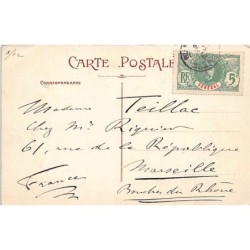 9/12
CARTE POSTALE
CORRESPONDANCE
RF
SÉNÉGAL
5c
Madame Teillac
Chez Mr Riquier
61, rue de la République
Marseille
France
Bouches du Rhône